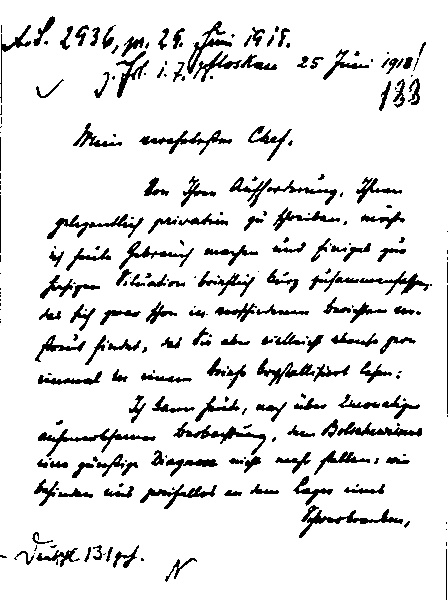 A.S. 2936, pr. 29. Juni 1918.
Moskau 25 Juni 1918
133
Mein verehrtester Chef,
Von Ihrer Aufforderung, Ihnen
gelegentlich privatim zu schreiben, möchte
ich heute Gebrauch machen und Einiges zur
hiesigen Situation brieflich kurz zusammenfassen,
das sich zwar schon in verschiedenen Berichten ver-
streut findet, das Sie aber vielleicht ebenso gern
einmal in einem Briefe krystallisiert lesen:
Ich kann heute, nach über 2monatiger
aufmerksamer Beobachtung, dem Bolschewismus
eine günstige Diagnose nicht mehr stellen: wir
befinden uns zweifellos an dem Lager eines
Schwerkranken,
Deutschl 131 geh.